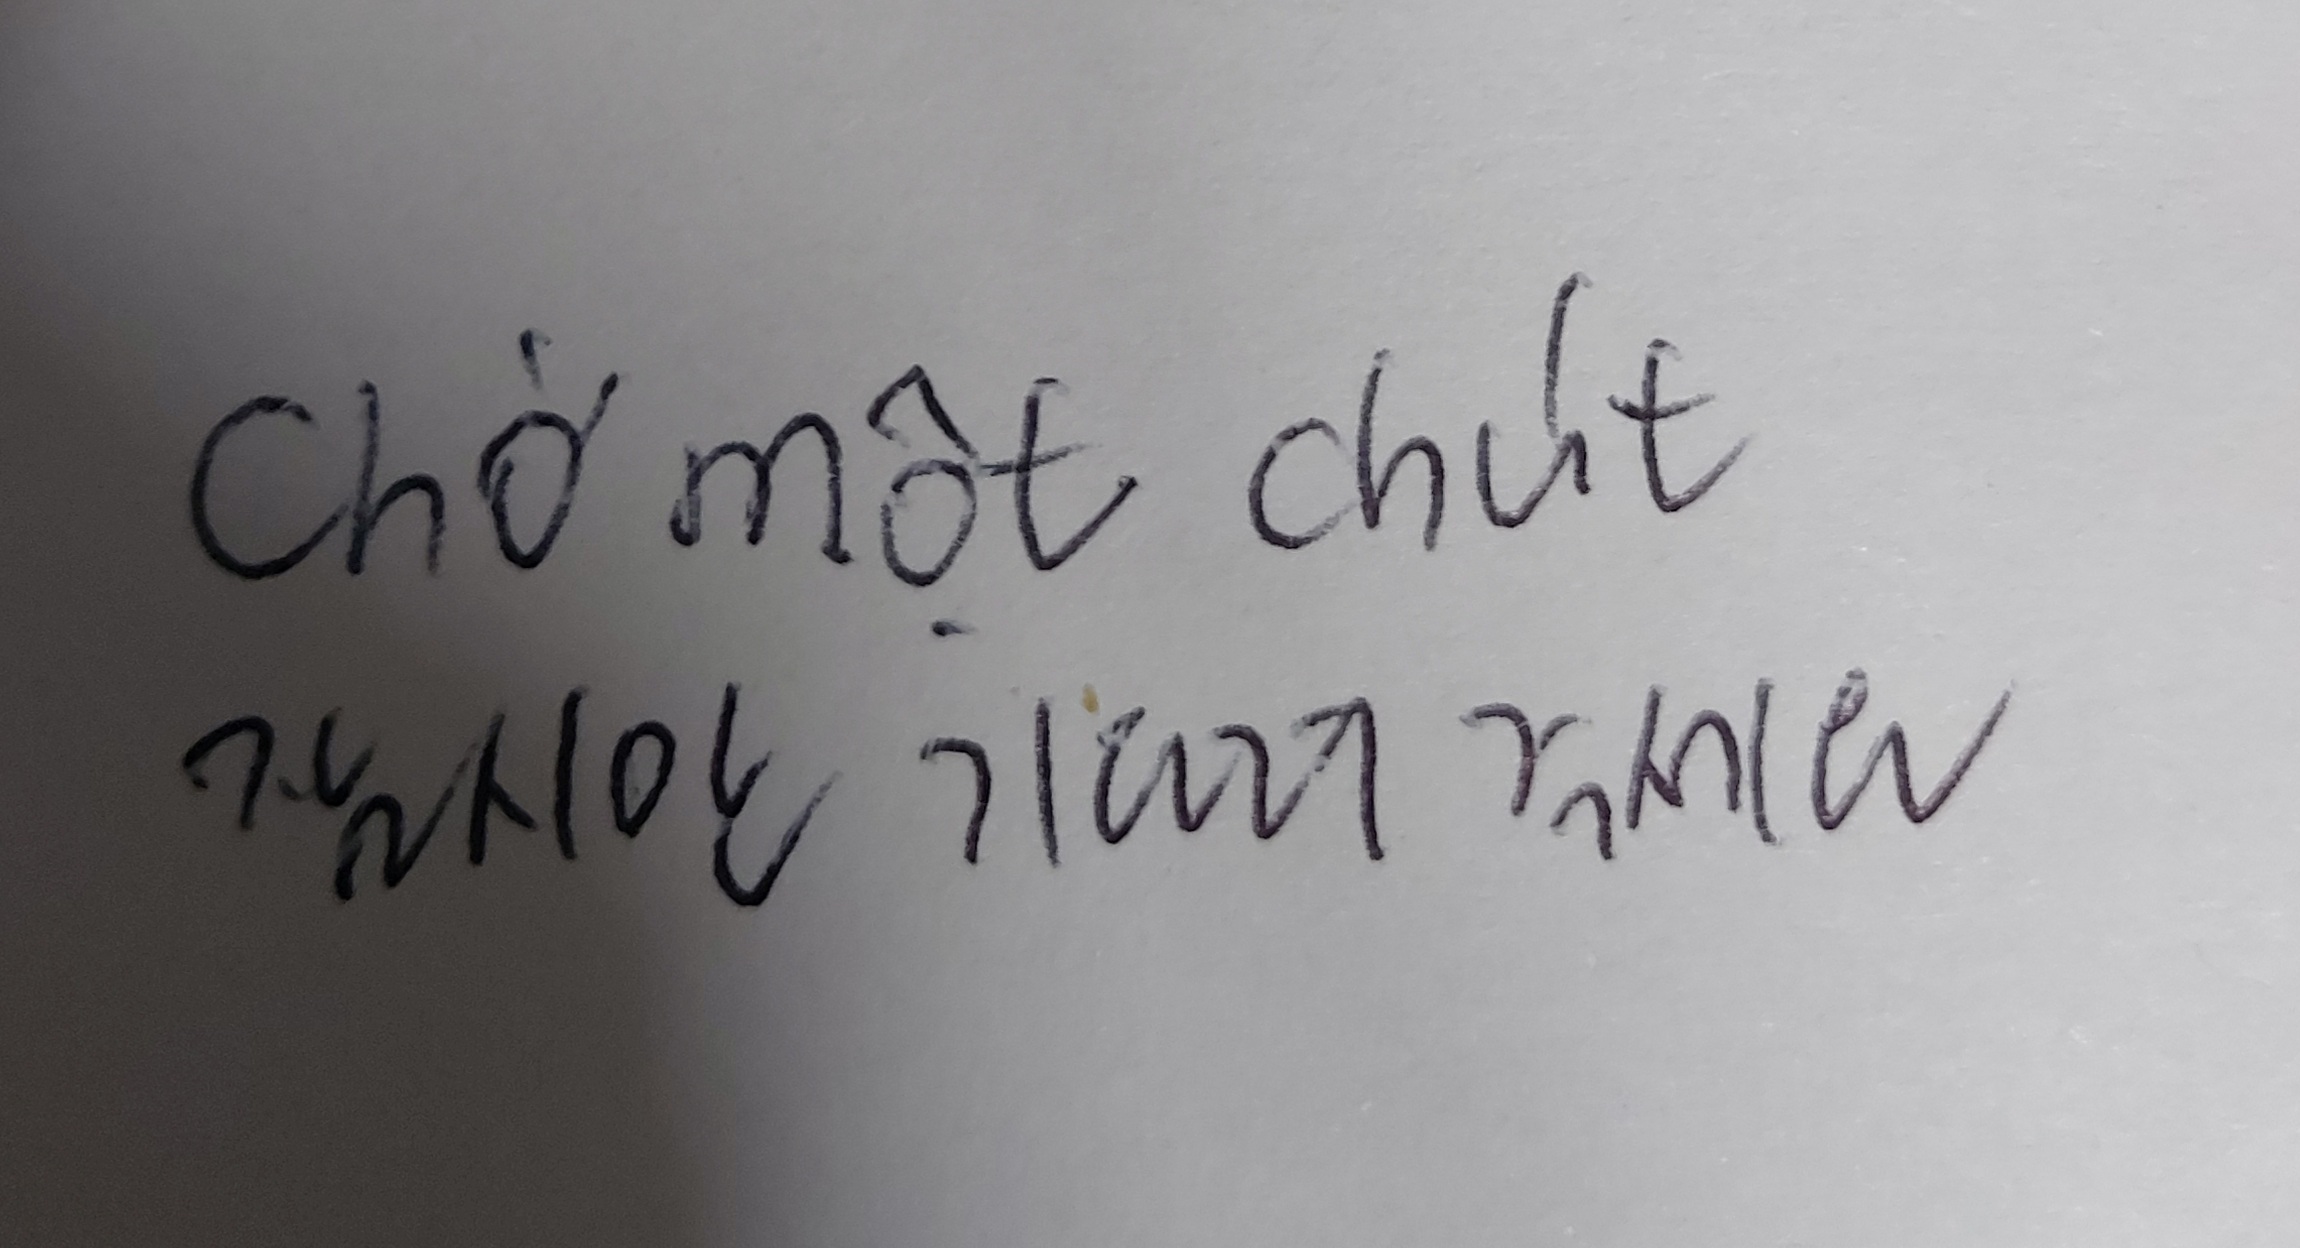 Chờ một chút
잠시만 기다려 주세요